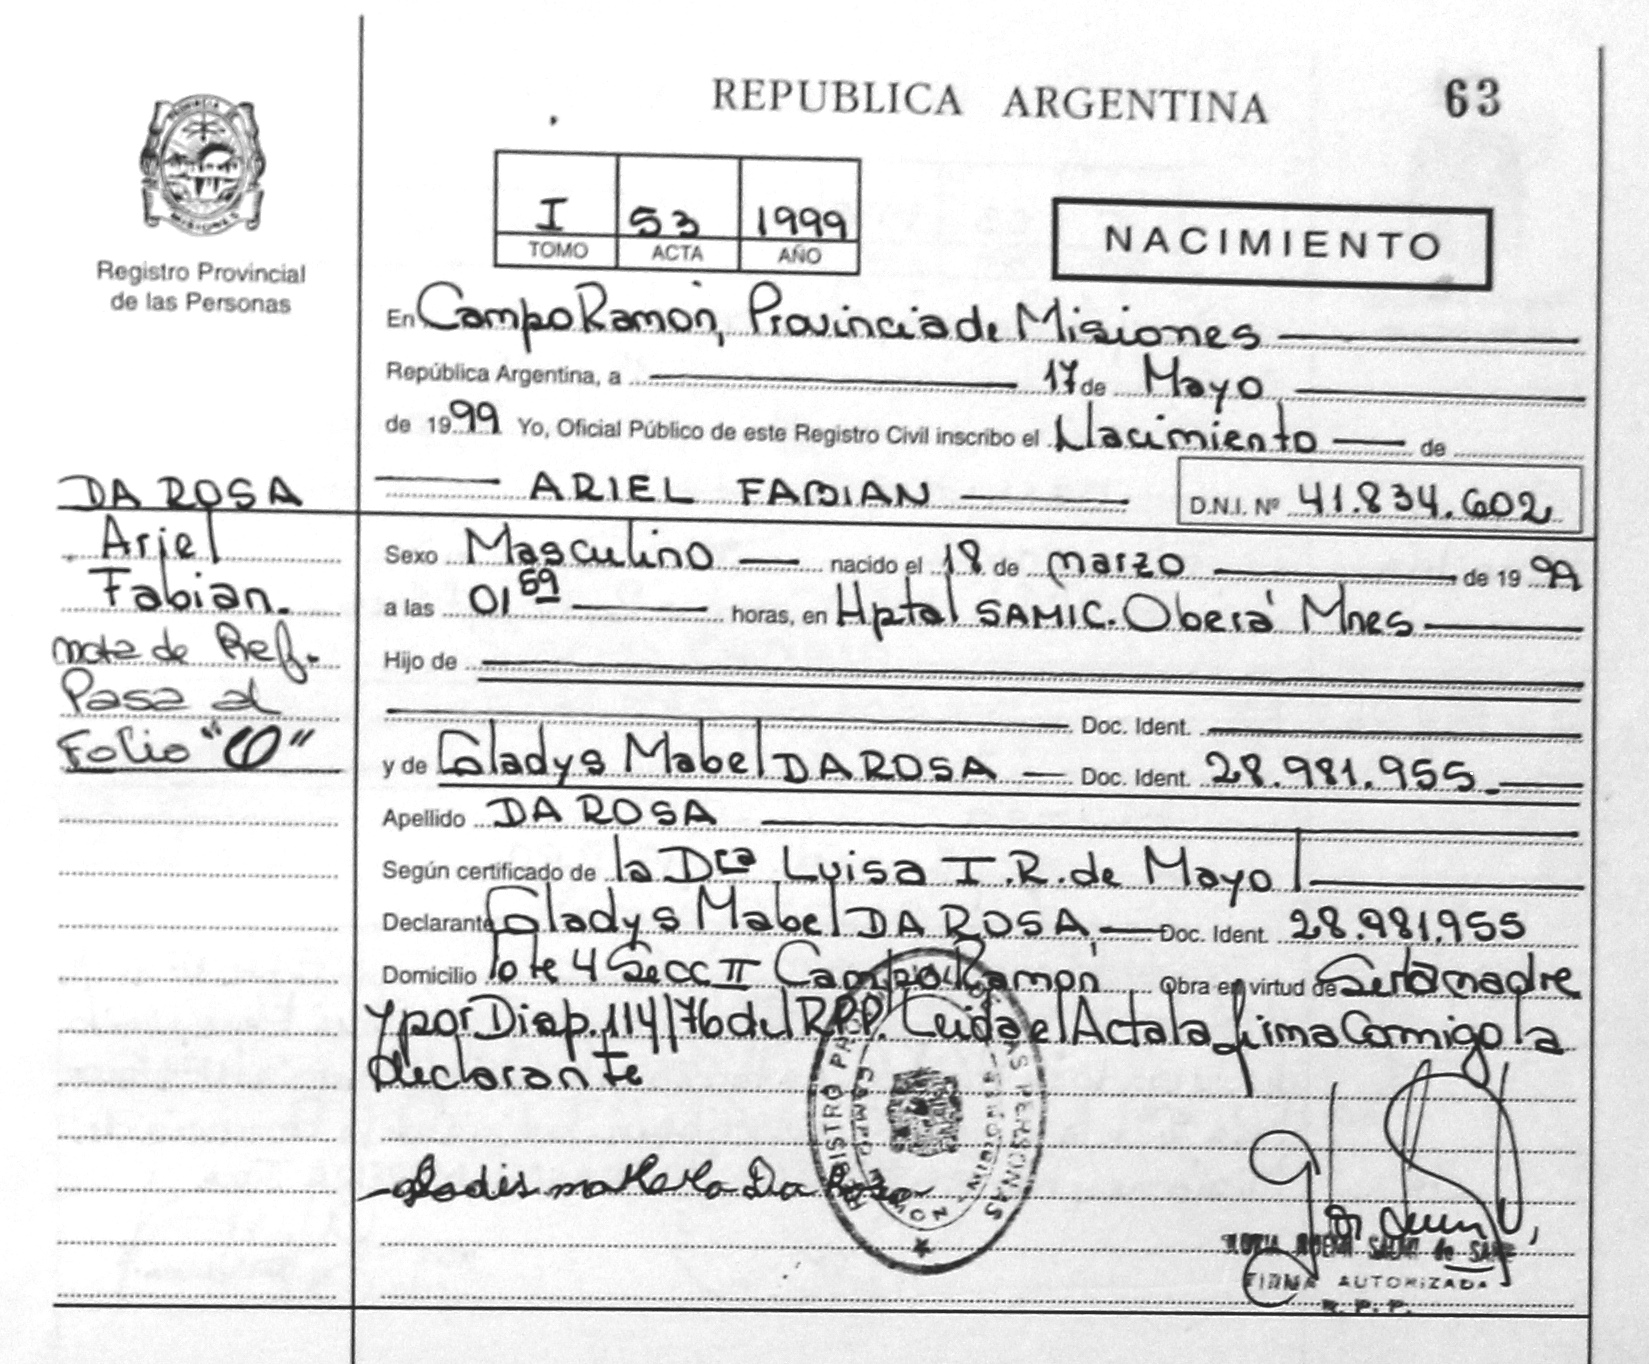 REPUBLICA ARGENTINA
63
PROVINCIA
MISIONES
Registro Provincial
de las Personas
I 53 1999
TOMO ACTA AÑO
NACIMIENTO
En Campo Ramón, Provincia de Misiones
República Argentina, a 17 de Mayo
de 1999 Yo, Oficial Público de este Registro Civil inscribo el Nacimiento de
ARIEL FABIAN D.N.I. Nº 41.834.602
DA ROSA
Ariel
Fabian.
nota de Ref.
Pasa al
Folio
Sexo Masculino nacido el 18 de marzo de 1999
a las 01 59 horas, en Hptal SAMIC. Oberá Mnes
Hijo de
Doc. Ident.
y de Gladys Mabel DA ROSA Doc. Ident. 28.981.955
Apellido DA ROSA
Según certificado de la Dra Luisa I.R. de Mayol
Declarante Gladys Mabel DA ROSA, Doc. Ident. 28.981.955
Domicilio lote 4 Secc II Campo Ramón Obra en virtud de Ser la madre
y por Disp. 114/76 del R.P.P. Leida el Acta la firma Conmigo la
declarante
REGISTRO PROVINCIAL DE LAS PERSONAS
CAMPO RAMON - MISIONES
Da Rosa
de
FIRMA AUTORIZADA
R.P.P.